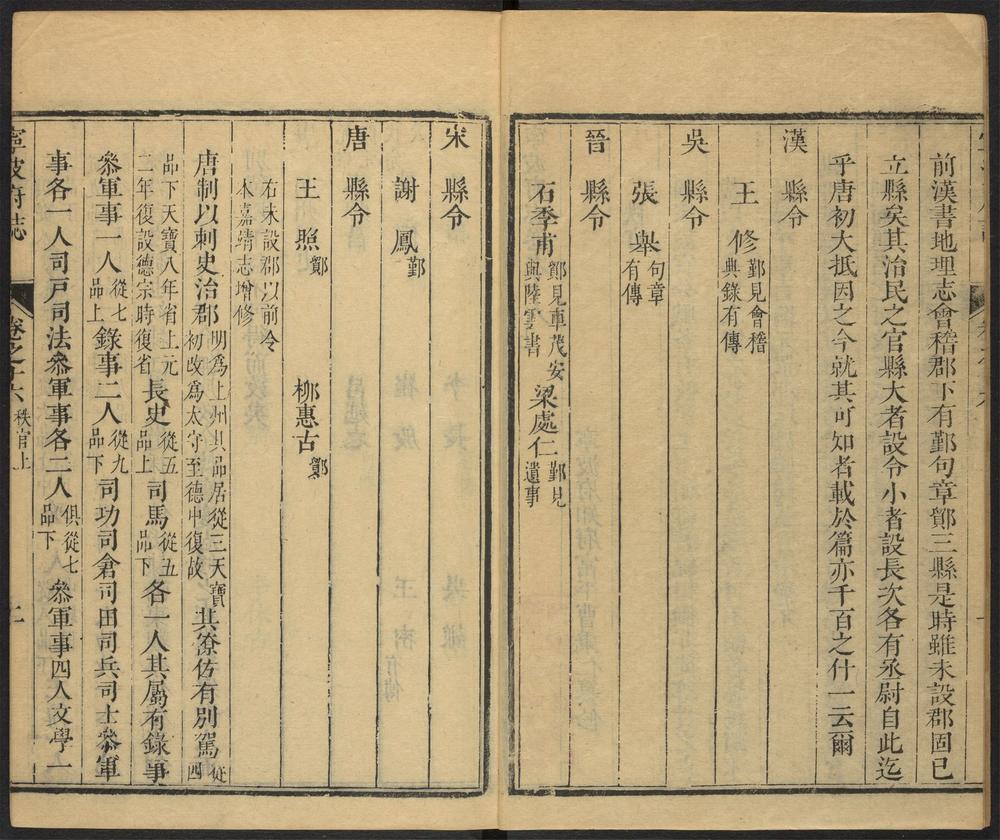 前漢書地理志會稽郡下有鄞句章鄮三縣是時雖未設郡固已
立縣矣其治民之官縣大者設令小者設長次各有丞尉自此迄
乎唐初大抵因之今就其可知者載於篇亦千百之什一云爾
漢
縣令
王修鄞見會稽典錄有傳
吳
縣令
張舉句章有傳
晉
縣令
石季甫鄮見車茂安與陸雲書 梁處仁鄞見遺事
宋
縣令
謝鳳鄞
唐
縣令
王照鄮 柳惠古鄮
右未設郡以前令
本嘉靖志增修
唐制以刺史治郡明爲上州其品居從三天寶初改爲太守至德中復故其僚佐有別駕從四
品下天寶八年省上元二年復設德宗時復省長史從五品上司馬從五品下各一人其屬有錄事
參軍事一人從七品上錄事二人從九品下司功司倉司田司兵司士參軍
事各一人司戸司法參軍事各二人俱從七品下參軍事四人文學一
寧波府志
卷之十六
秩官上